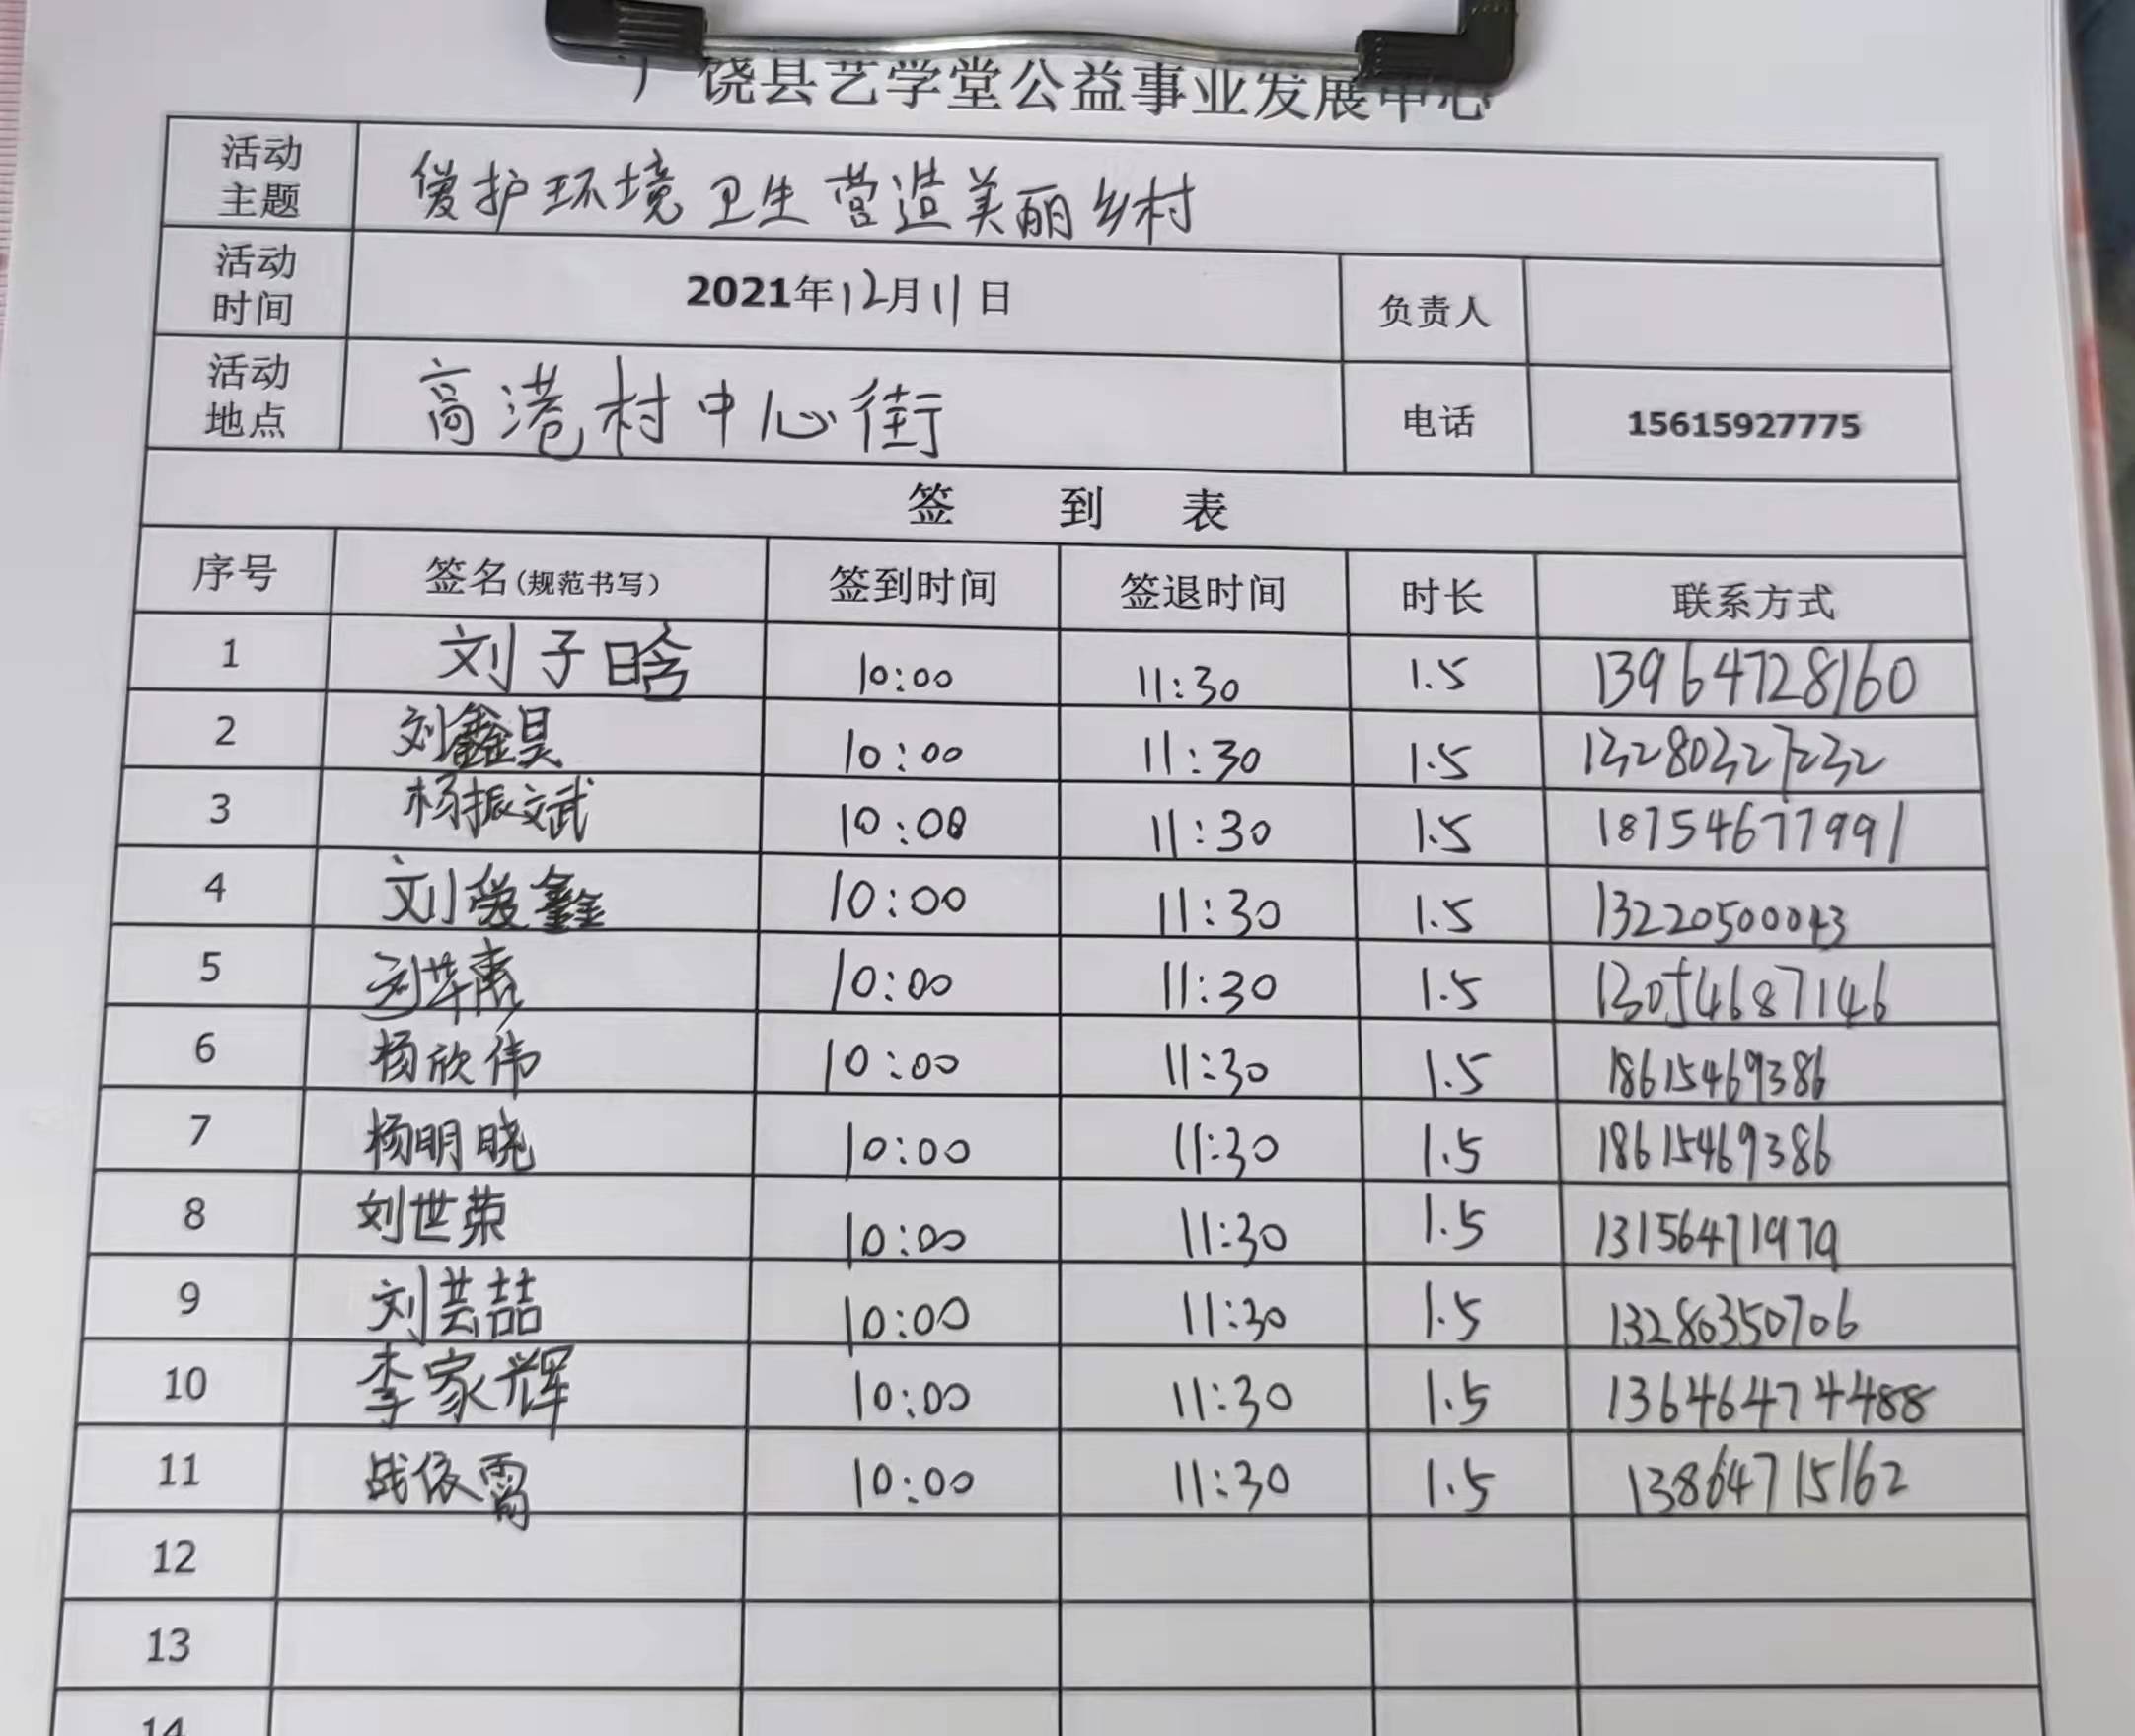 广饶县艺学堂公益事业发展中心
活动主题 爱护环境卫生营造美丽乡村
活动时间 2021年12月11日 负责人
活动地点 高港村中心街 电话 15615927775
签到表
序号 签名(规范书写) 签到时间 签退时间 时长 联系方式
1 刘子晗 10:00 11:30 1.5 13964728160
2 刘鑫昊 10:00 11:30 1.5 13280327232
3 杨振斌 10:00 11:30 1.5 18754677991
4 刘爱鑫 10:00 11:30 1.5 13220500043
5 10:00 11:30 1.5 13054687146
6 杨欣伟 10:00 11:30 1.5 18615469386
7 杨明晓 10:00 11:30 1.5 18615469386
8 刘世荣 10:00 11:30 1.5 13156471979
9 刘芸喆 10:00 11:30 1.5 13280350706
10 李家辉 10:00 11:30 1.5 13646474488
11 战依霄 10:00 11:30 1.5 13864715162
12
13
14